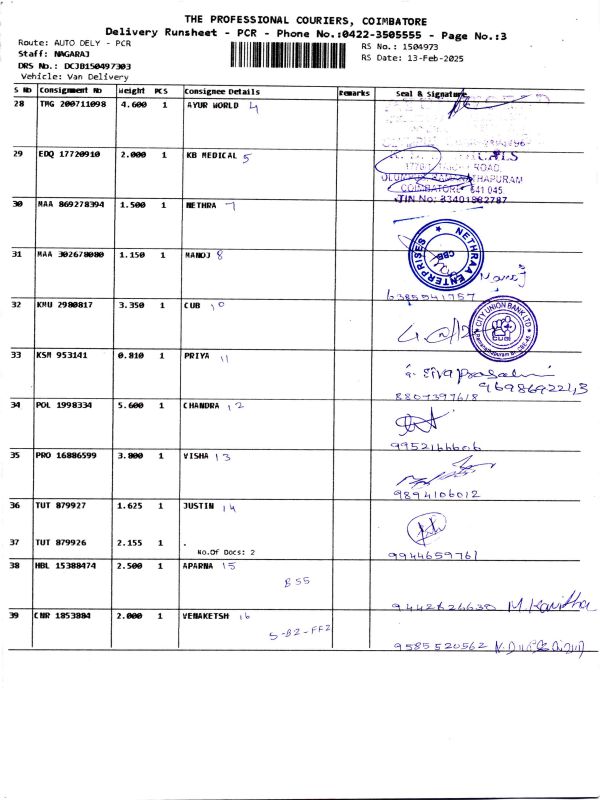 THE PROFESSIONAL COURIERS, COIMBATORE
Delivery Runsheet - PCR - Phone No.:0422-3505555 - Page No.:3
Route: AUTO DELY - PCR
RS No.: 1504973
Staff: NAGARAJ
RS Date: 13-Feb-2025
DRS No.: DCJB150497303
Vehicle: Van Delivery
S No Consignment No Weight PCS Consignee Details Remarks Seal & Signature
28 TMG 200711098 4.600 1 AYUR WORLD 4
29 EDQ 17720910 2.000 1 KB MEDICAL 5
ROAD,
COIMBATORE 641 045
TIN No: 33401882787
30 MAA 869278394 1.500 1 NETHRA 7
NETHRAA ENTERPRISES
CBE
31 MAA 302678080 1.150 1 MANOJ 8
Manoj
6385541757
32 KMU 2980817 3.350 1 CUB 10
CITY UNION BANK LTD
CUB
33 KSM 953141 0.810 1 PRIYA 11
8807397618
34 POL 1998334 5.600 1 CHANDRA 12
35 PRO 16886599 3.800 1 VISHA 13
9894106012
36 TUT 879927 1.625 1 JUSTIN 14
37 TUT 879926 2.155 1 .
No.Of Docs: 2
9944659761
38 HBL 15388474 2.500 1 APARNA 15
B55
9442626630 M. Kavitha
39 CNR 1853884 2.000 1 VENAKETSH 16
S-B2-FF2
9585520562